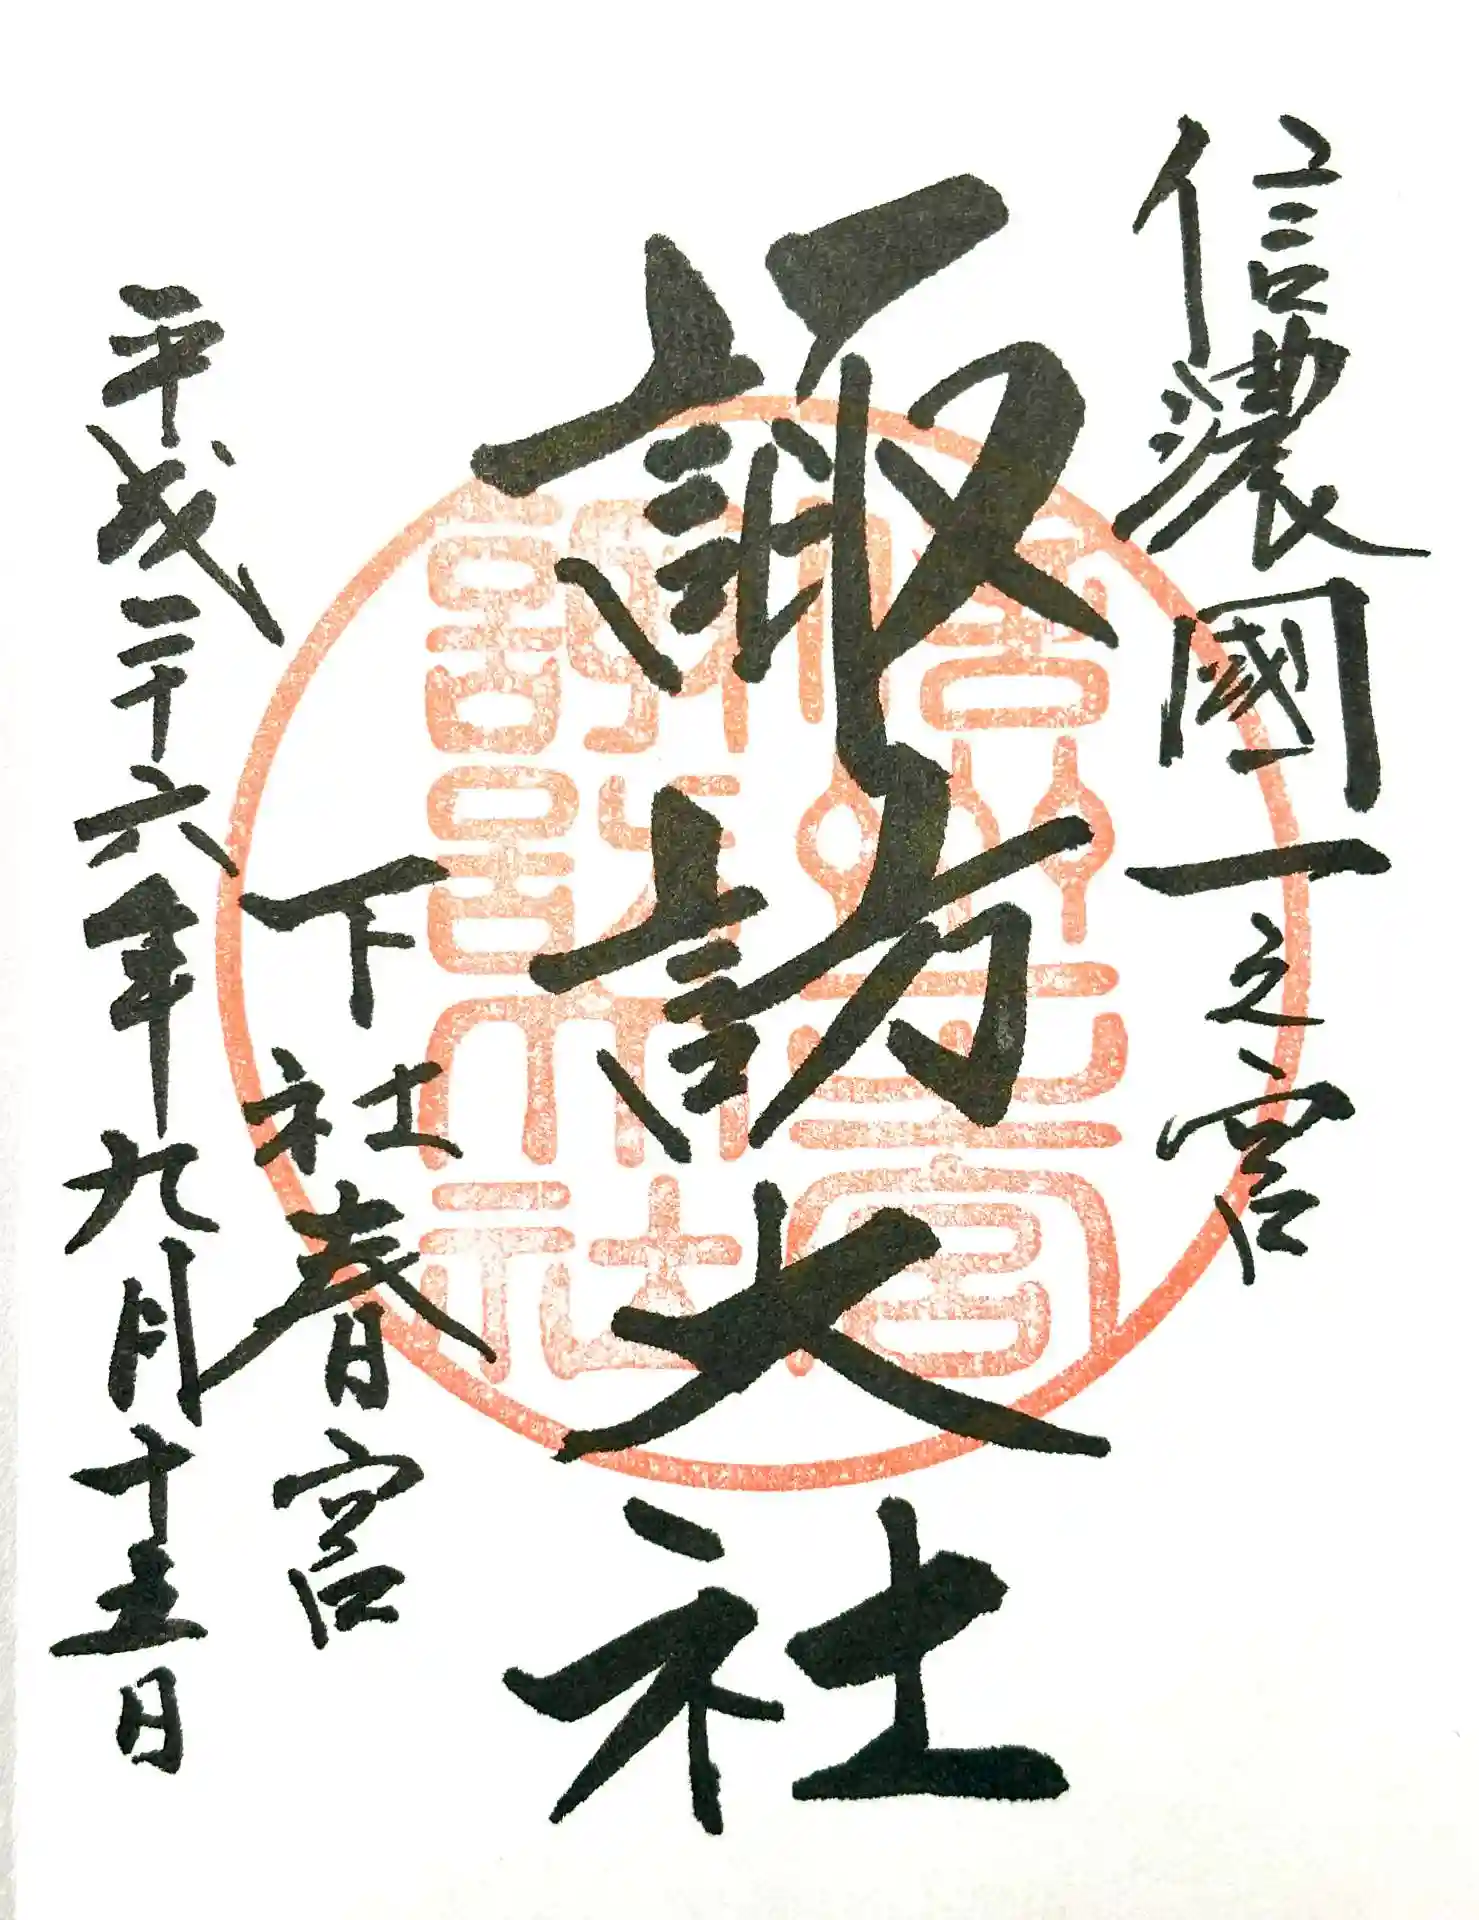 信濃國一之宮
諏訪大社
下社春宮
平成二十六年九月十五日
信州一之宮
諏訪大社